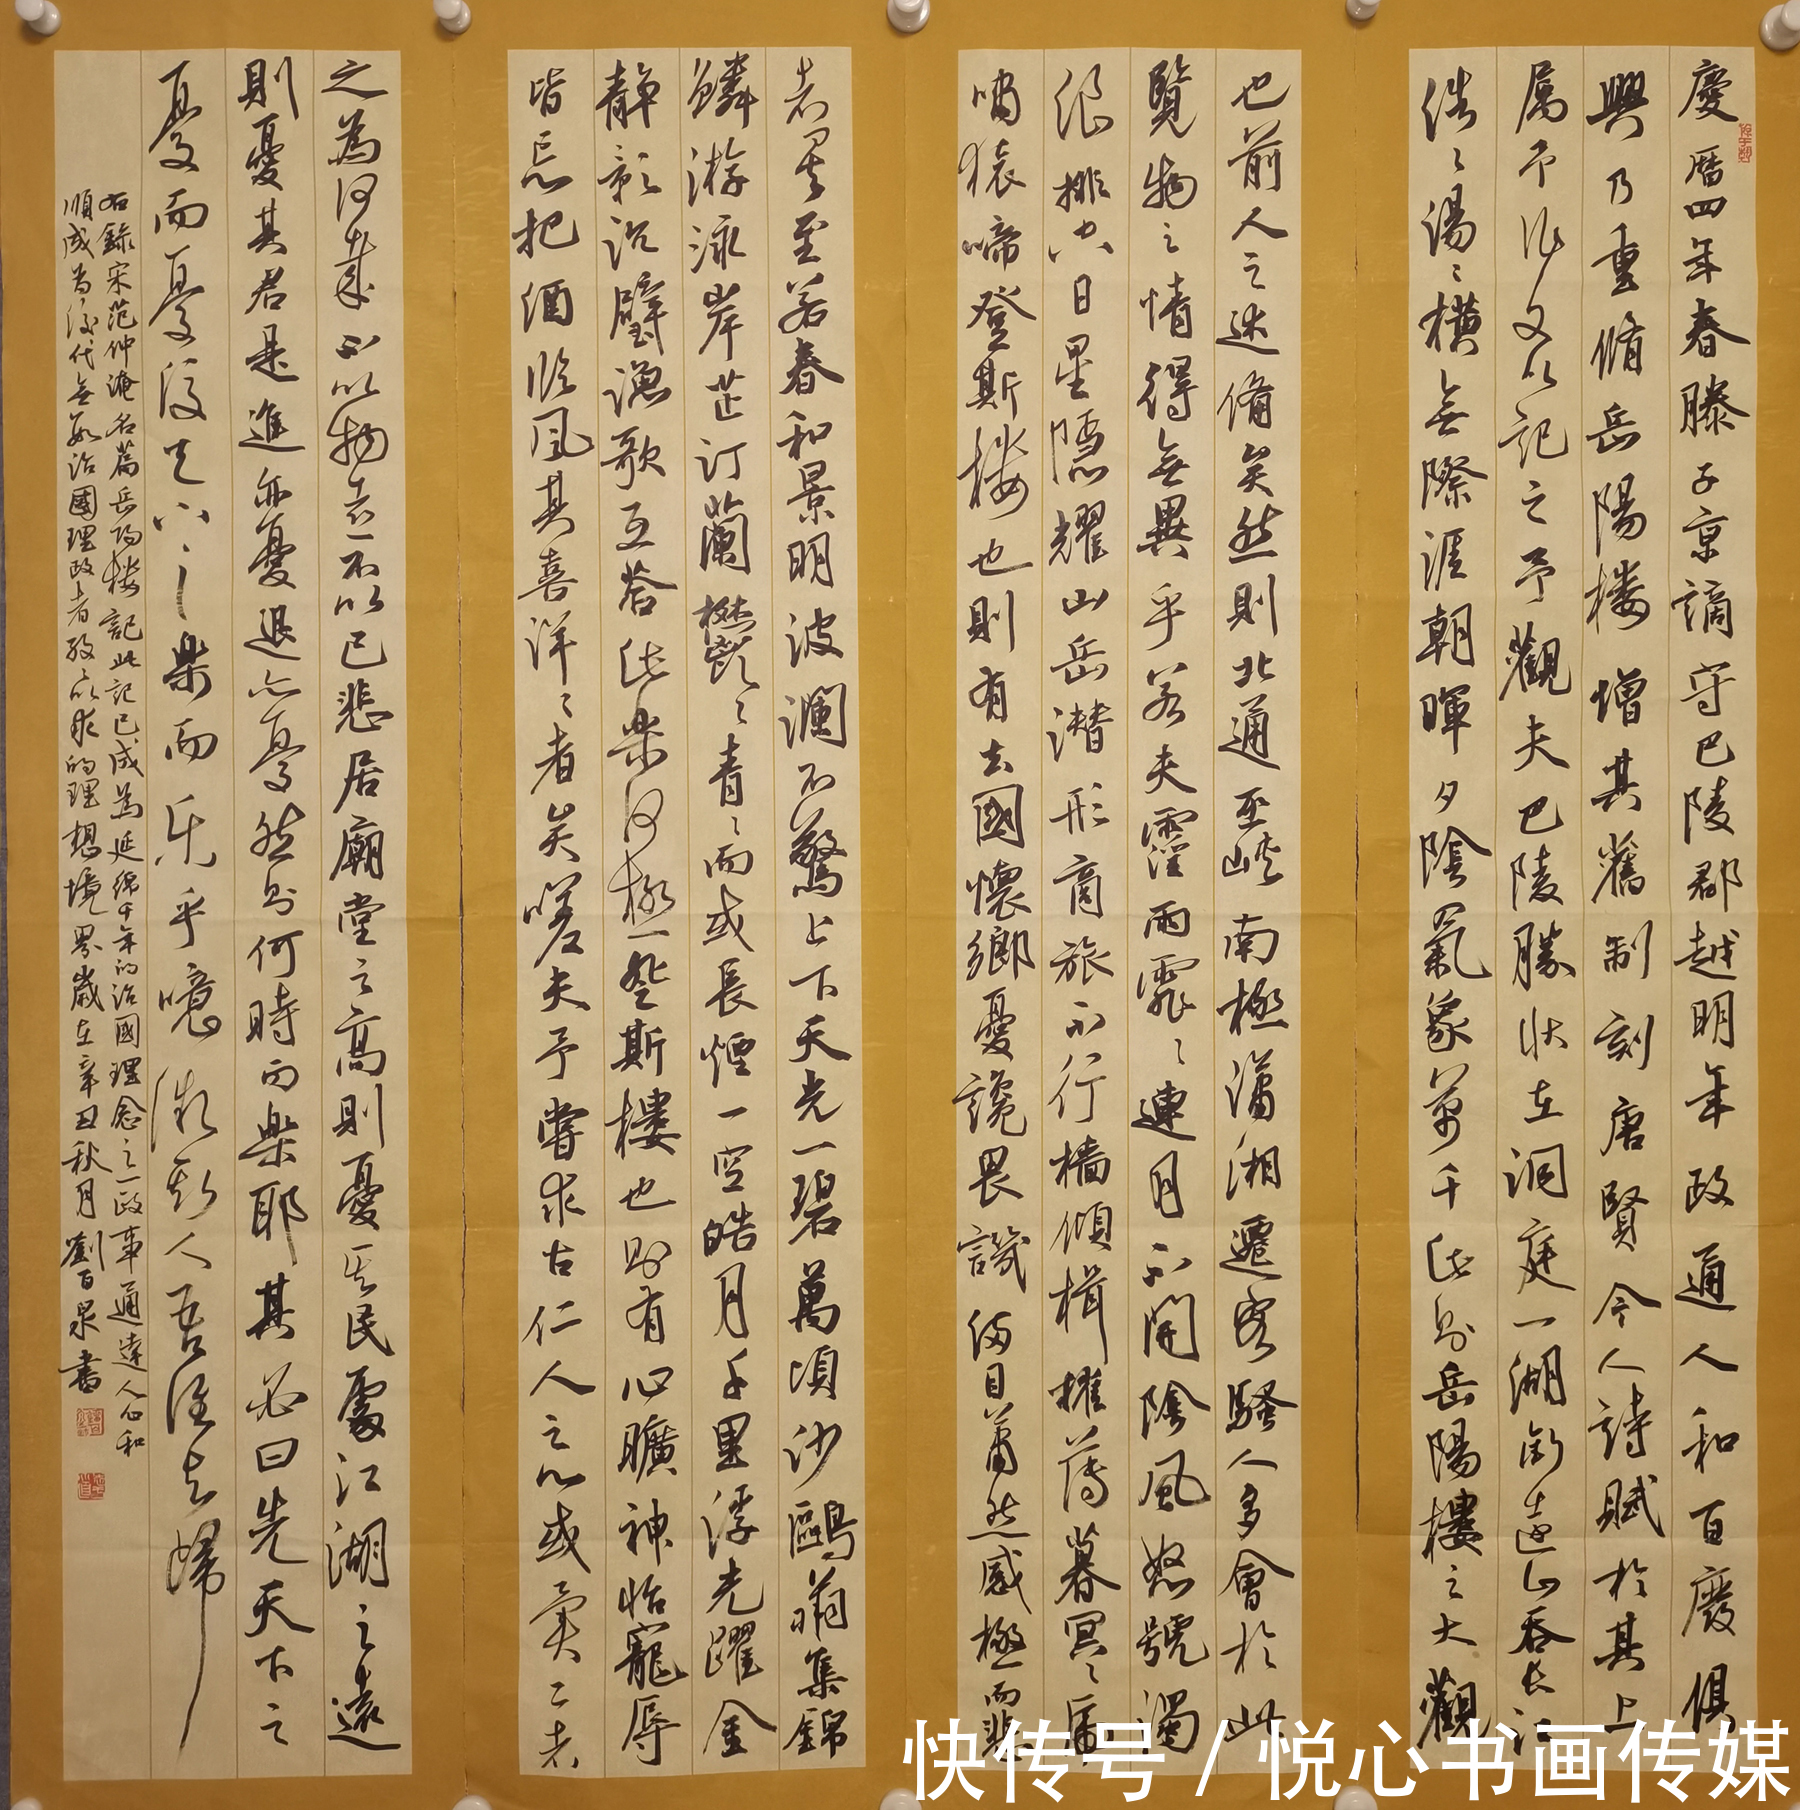 慶曆四年春滕子京謫守巴陵郡越明年政通人和百廢俱
興乃重脩岳陽楼增其舊制刻唐賢今人詩賦於其上
属予作文以記之予觀夫巴陵勝狀在洞庭一湖銜遠山吞長江
浩〻湯〻橫無際涯朝暉夕陰氣象萬千此則岳陽樓之大觀
也前人之述備矣然則北通巫峽南極瀟湘遷客騷人多會於此
覽物之情得無異乎若夫霪雨霏〻連月不開陰風怒號濁
浪排空日星隱耀山岳潛形商旅不行檣傾楫摧薄暮冥〻虎
嘯猿啼登斯楼也則有去國懷鄉憂讒畏譏滿目蕭然感極而悲
者矣至若春和景明波瀾不驚上下天光一碧萬頃沙鷗翔集錦
鱗游泳岸芷汀蘭鬱〻青〻而或長煙一空皓月千里浮光躍金
靜影沉璧漁歌互答此樂何極登斯樓也則有心曠神怡寵辱
皆忘把酒臨風其喜洋〻者矣嗟夫予嘗求古仁人之心或異二者
之為何哉不以物喜不以己悲居廟堂之高則憂其民處江湖之遠
則憂其君是進亦憂退亦憂然則何時而樂耶其必曰先天下之
憂而憂後天下之樂而乐乎噫微斯人吾誰与歸
右錄宋范仲淹名篇岳陽楼記此記已成為延綿千年的治國理念之一政事通達人心和
順成为後代無數治國理政者孜〻以求的理想境界歲在辛丑秋月劉百泉書
快传号 / 悦心书画传媒